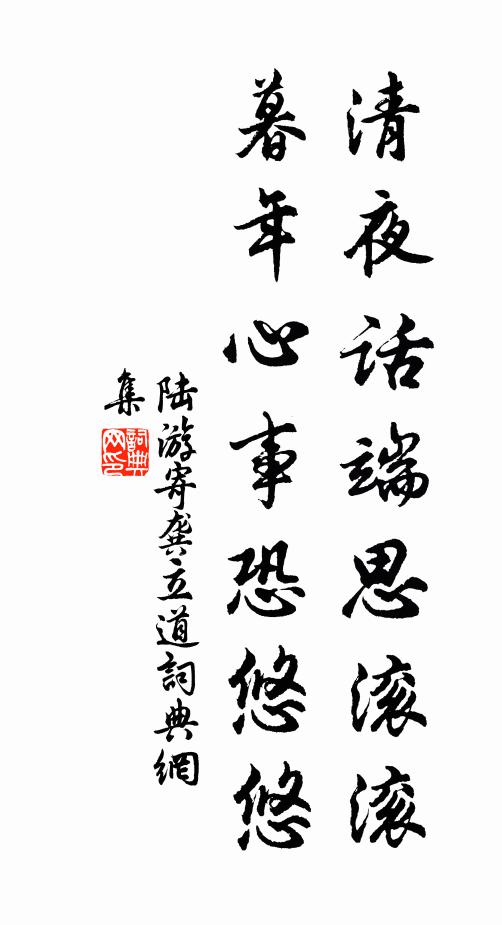 清夜話端思滚滚
暮年心事恐悠悠
陸游寄龔立道詞典網
集
詞典
网印